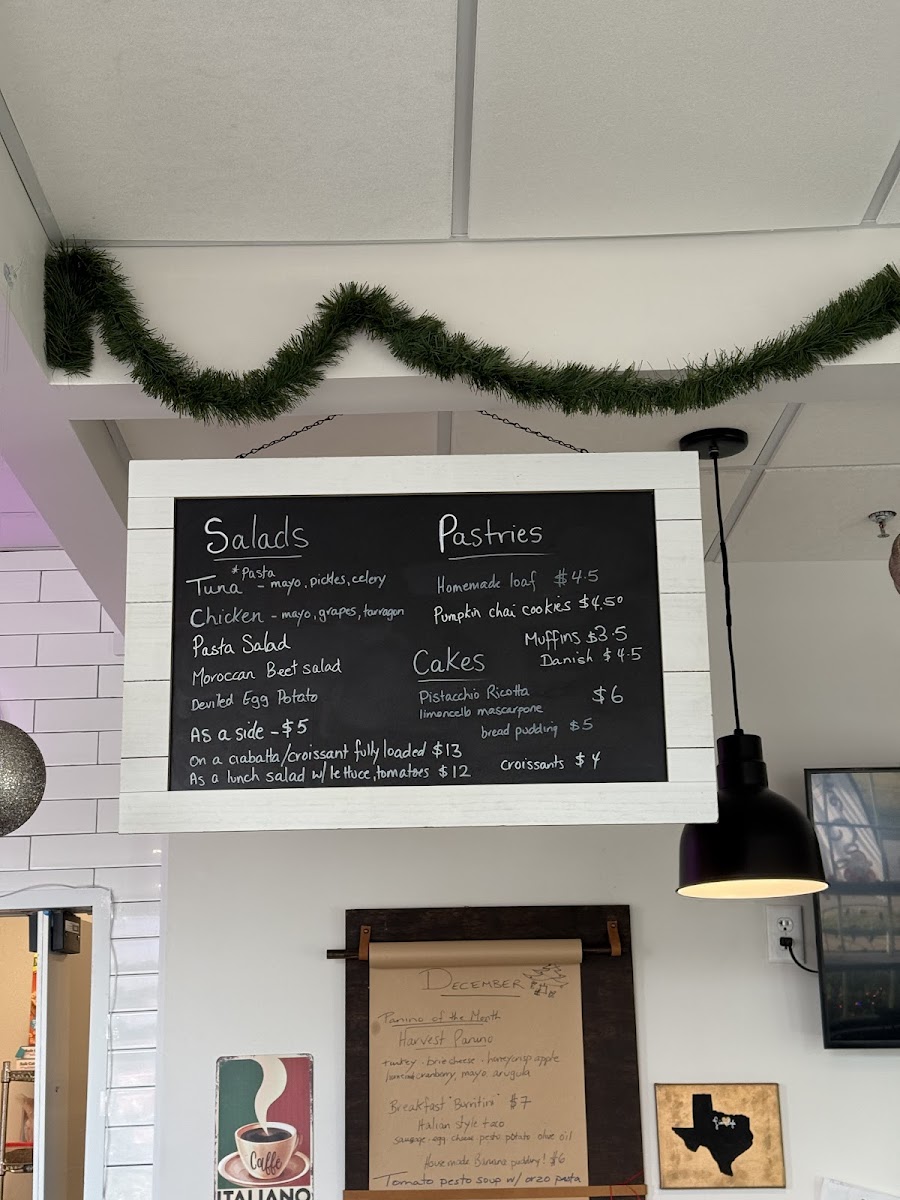 Salads
*Pasta
Tuna - mayo, pickles, celery
Chicken - mayo, grapes, tarragon
Pasta Salad
Moroccan Beet salad
Deviled Egg Potato
As a side - $5
On a ciabatta/croissant fully loaded $13
As a lunch salad w/ lettuce, tomatoes $12
Pastries
Homemade loaf $4.5
Pumpkin chai cookies $4.50
Muffins $3.5
Danish $4.5
Cakes
Pistacchio Ricotta $6
limoncello mascarpone
bread pudding $5
Croissants $4
DECEMBER
Panino of the Month
Harvest Panino
turkey - brie cheese - honeycrisp apple
cranberry, mayo, arugula
Breakfast "Burritini" $7
Italian style taco
sausage - egg cheese pesto potato olive oil
Housemade Banana pudding! $6
Tomato pesto soup w/ orzo pasta
Caffe
ITALIANO